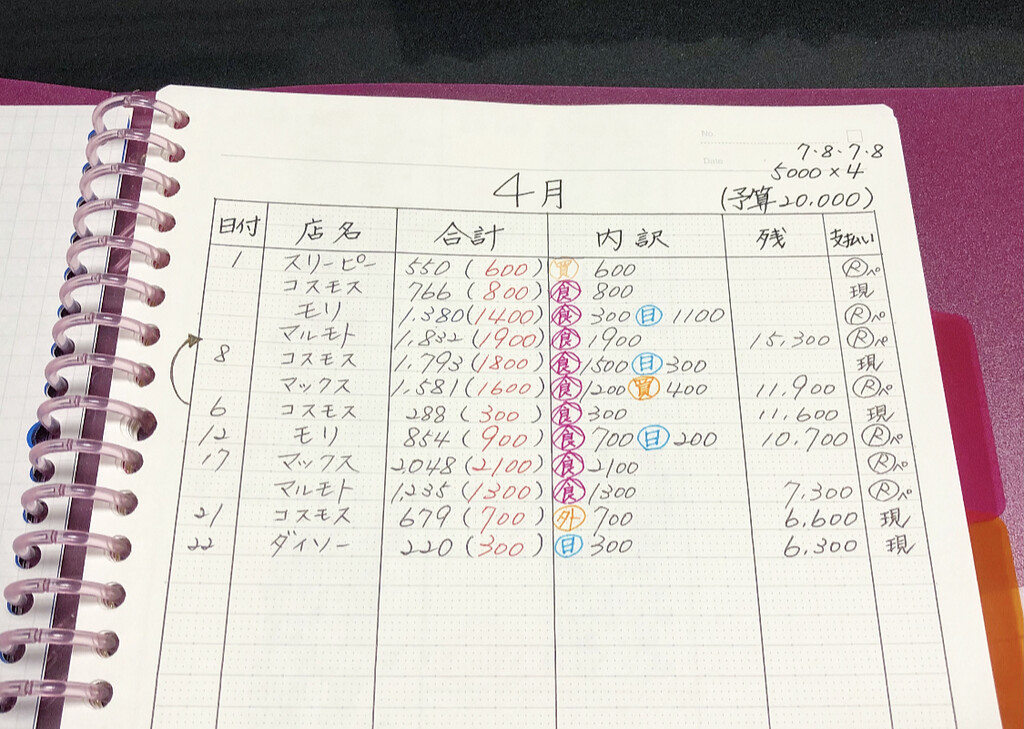 No.
Date
7・8・7・8
5000×4
4月
(予算20.000)
日付 店名 合計 内訳 残 支払い
1 スリーピー 550(600) 買 600 Rペ
コスモス 766(800) 食 800 現
モリ 1.380(1400) 食 300 日 1100 Rペ
マルモト 1.832(1900) 食 1900 15.300 Rペ
8 コスモス 1.793(1800) 食 1500 日 300 現
マックス 1.581(1600) 食 1200 買 400 11.900 Rペ
6 コスモス 288(300) 食 300 11.600 現
12 モリ 854(900) 食 700 日 200 10.700 Rペ
17 マックス 2048(2100) 食 2100 Rペ
マルモト 1,235(1300) 食 1300 7.300 Rペ
21 コスモス 679(700) 外 700 6.600 現
22 ダイソー 220(300) 日 300 6.300 現